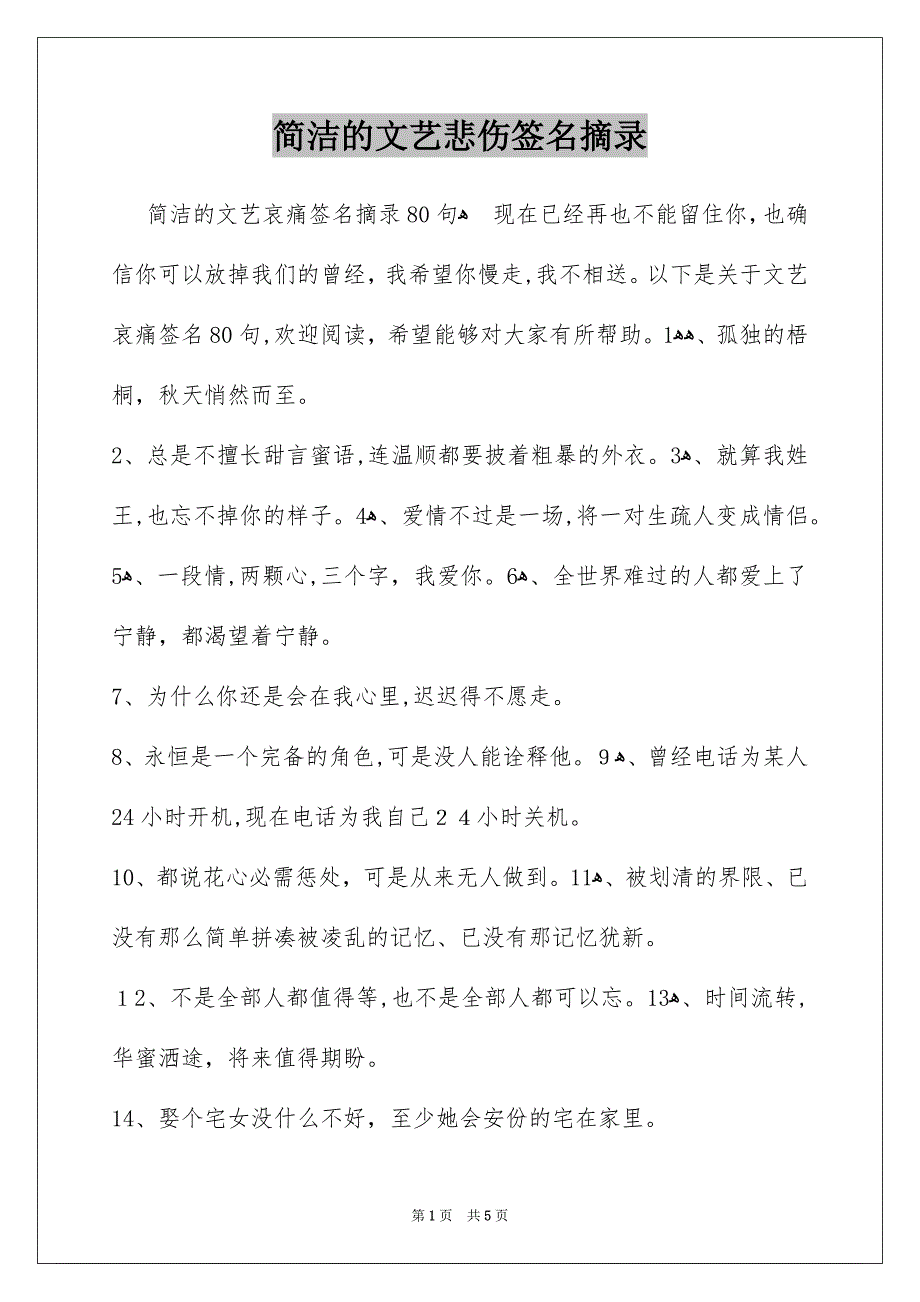 简洁的文艺悲伤签名摘录
简洁的文艺哀痛签名摘录80句ﻫ 现在已经再也不能留住你,也确
信你可以放掉我们的曾经，我希望你慢走,我不相送。以下是关于文艺
哀痛签名80句,欢迎阅读，希望能够对大家有所帮助。1ﻫﻫ、孤独的梧
桐，秋天悄然而至。
2、总是不擅长甜言蜜语,连温顺都要披着粗暴的外衣。3ﻫ、就算我姓
王,也忘不掉你的样子。4ﻫ、爱情不过是一场,将一对生疏人变成情侣。
5ﻫ、一段情,两颗心,三个字，我爱你。6ﻫ、全世界难过的人都爱上了
宁静，都渴望着宁静。
7、为什么你还是会在我心里,迟迟得不愿走。
8、永恒是一个完备的角色,可是没人能诠释他。９ﻫ、曾经电话为某人
24小时开机,现在电话为我自己２４小时关机。
10、都说花心必需惩处，可是从来无人做到。11ﻫ、被划清的界限、已
没有那么简单拼凑被凌乱的记忆、已没有那记忆犹新。
１2、不是全部人都值得等,也不是全部人都可以忘。13ﻫ、时间流转,
华蜜洒途，将来值得期盼。
14、娶个宅女没什么不好，至少她会安份的宅在家里。
第1页 共5页